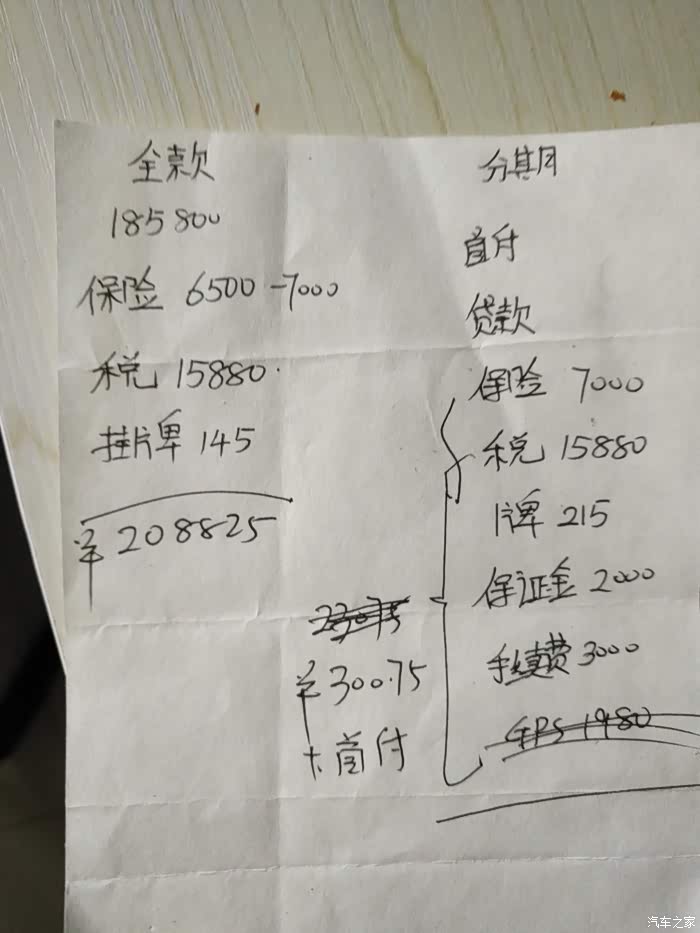 全款
185800
保险 6500-7000
税 15880.
挂牌 145
¥208825
分期
首付
贷款
保险 7000
税 15880
牌 215
保证金 2000
手续费 3000
GPS 1980
¥300.75
+首付
汽车之家